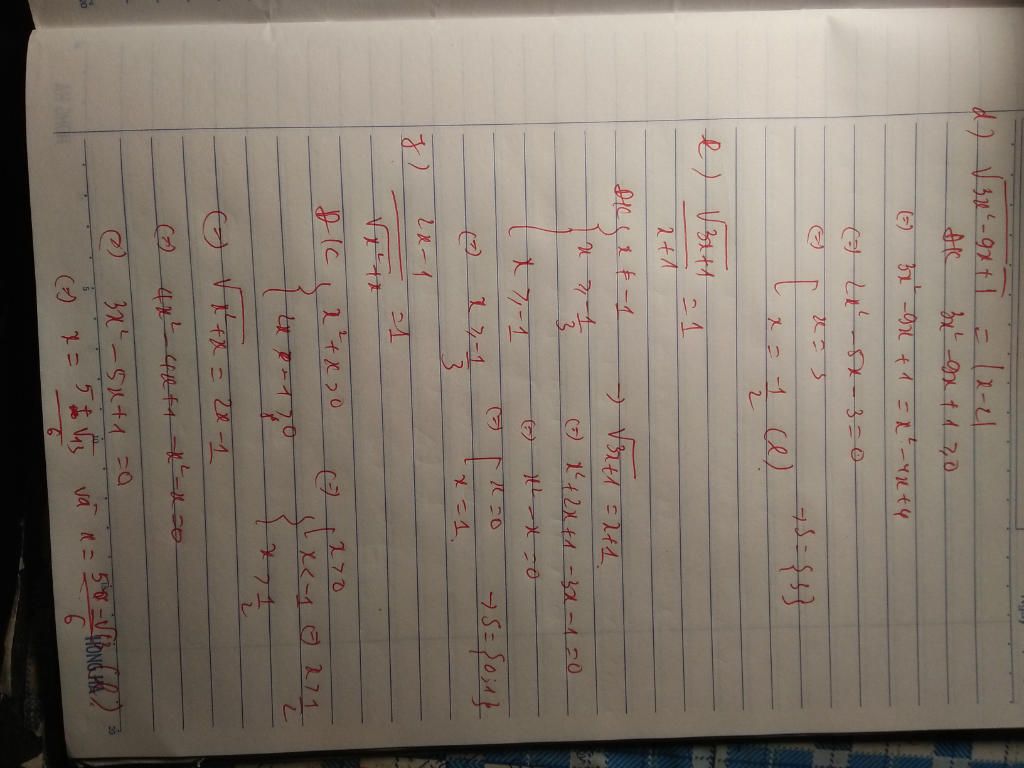 d) √3x²-9x+1 = |x-2|
đk 3x²-9x+1 ≥ 0
(=) 3x²-9x+1 = x²-4x+4
(=) 2x²-5x-3=0
(=) [ x=3
x = -1/2 (l) → S={3}
e) √3x+1 / x+1 = 1
đk { x ≠ -1 → √3x+1 = x+1
{ x ≥ -1/3 (=) x²+2x+1-3x-1=0
{ x ≥ -1 (=) x²-x=0
(=) x ≥ -1/3 (=) [ x=0
x=1 → S={0;1}
2x-1 / √x²+x = 1
đk { x²+x>0 (=) { x>0
x<-1 (=) x>1/2
{ x>1/2
(=) √x²+x = 2x-1
(=) 4x²-4x+1-x²-x=0
(=) 3x²-5x+1=0
(=) x = 5+√13/6 và x =
HONG HA